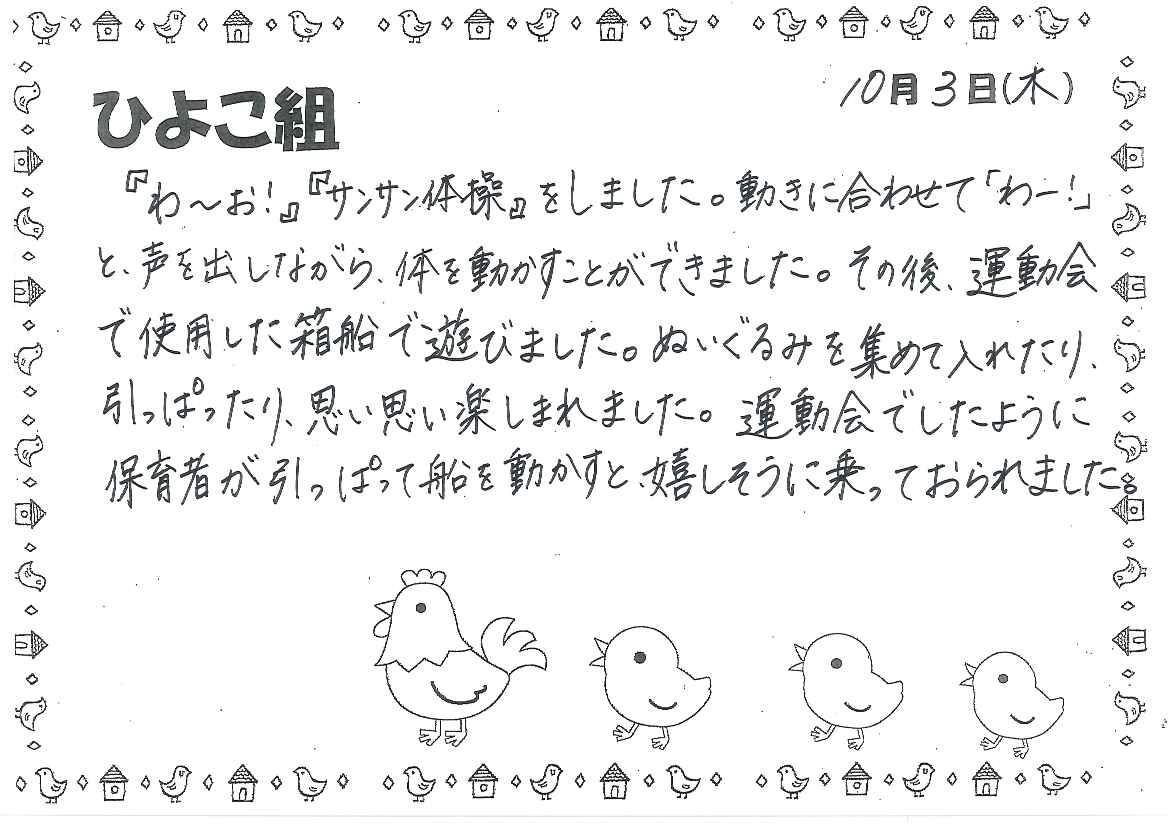 10月3日(木)
ひよこ組
『わ～お!』『サンサン体操』をしました。動きに合わせて「わー!」
と、声を出しながら、体を動かすことができました。その後、運動会
で使用した箱船で遊びました。ぬいぐるみを集めて入れたり、
引っぱったり、思い思い楽しまれました。運動会でしたように
保育者が引っぱって船を動かすと、嬉しそうに乗っておられました。